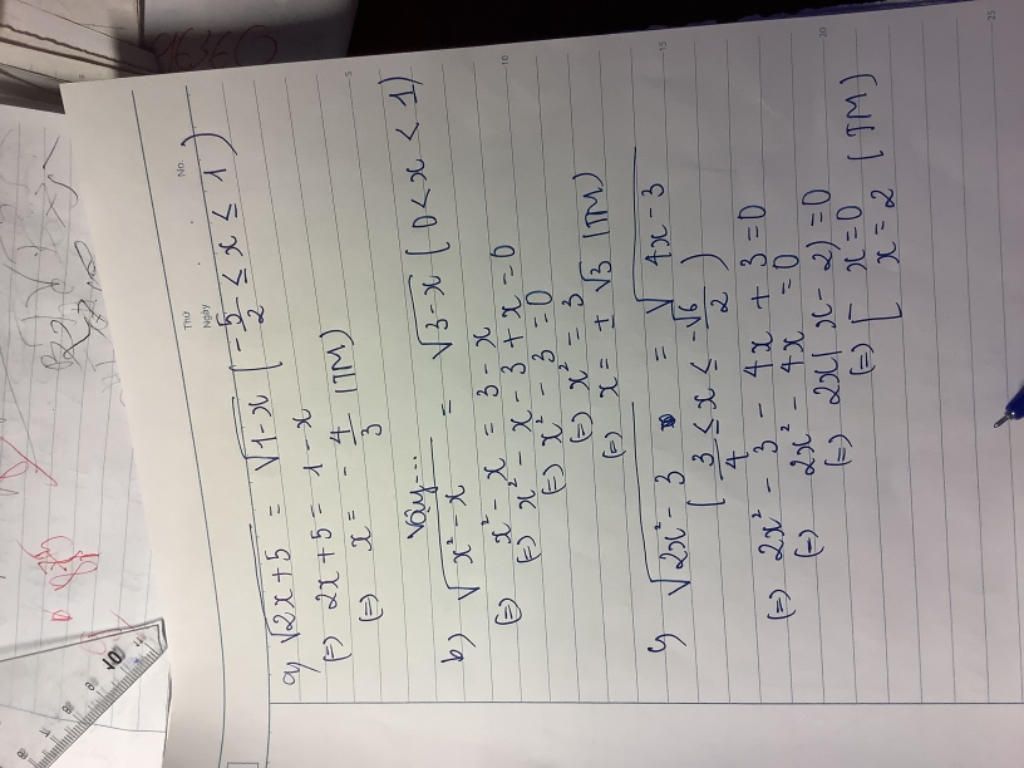 Thứ
Ngày
No.
a) √(2x+5) = √(1-x) ( -5/2 ≤ x ≤ 1 )
(=) 2x+5 = 1-x
(=) x = -4/3 (TM)
Vậy...
b) √(x²-x) = √(3-x) ( 0 < x < 1 )
(=) x²-x = 3-x
(=) x²-x-3+x=0
(=) x²-3=0
(=) x²=3
(=) x = ±√3 (TM)
c) √(2x²-3) = √(4x-3)
( 3/4 ≤ x ≤ -√6/2 )
(=) 2x²-3-4x+3=0
(=) 2x²-4x=0
(=) 2x(x-2)=0
(=) [ x=0
x=2 (TM)
5
10
15
20
25
10
9
8
7